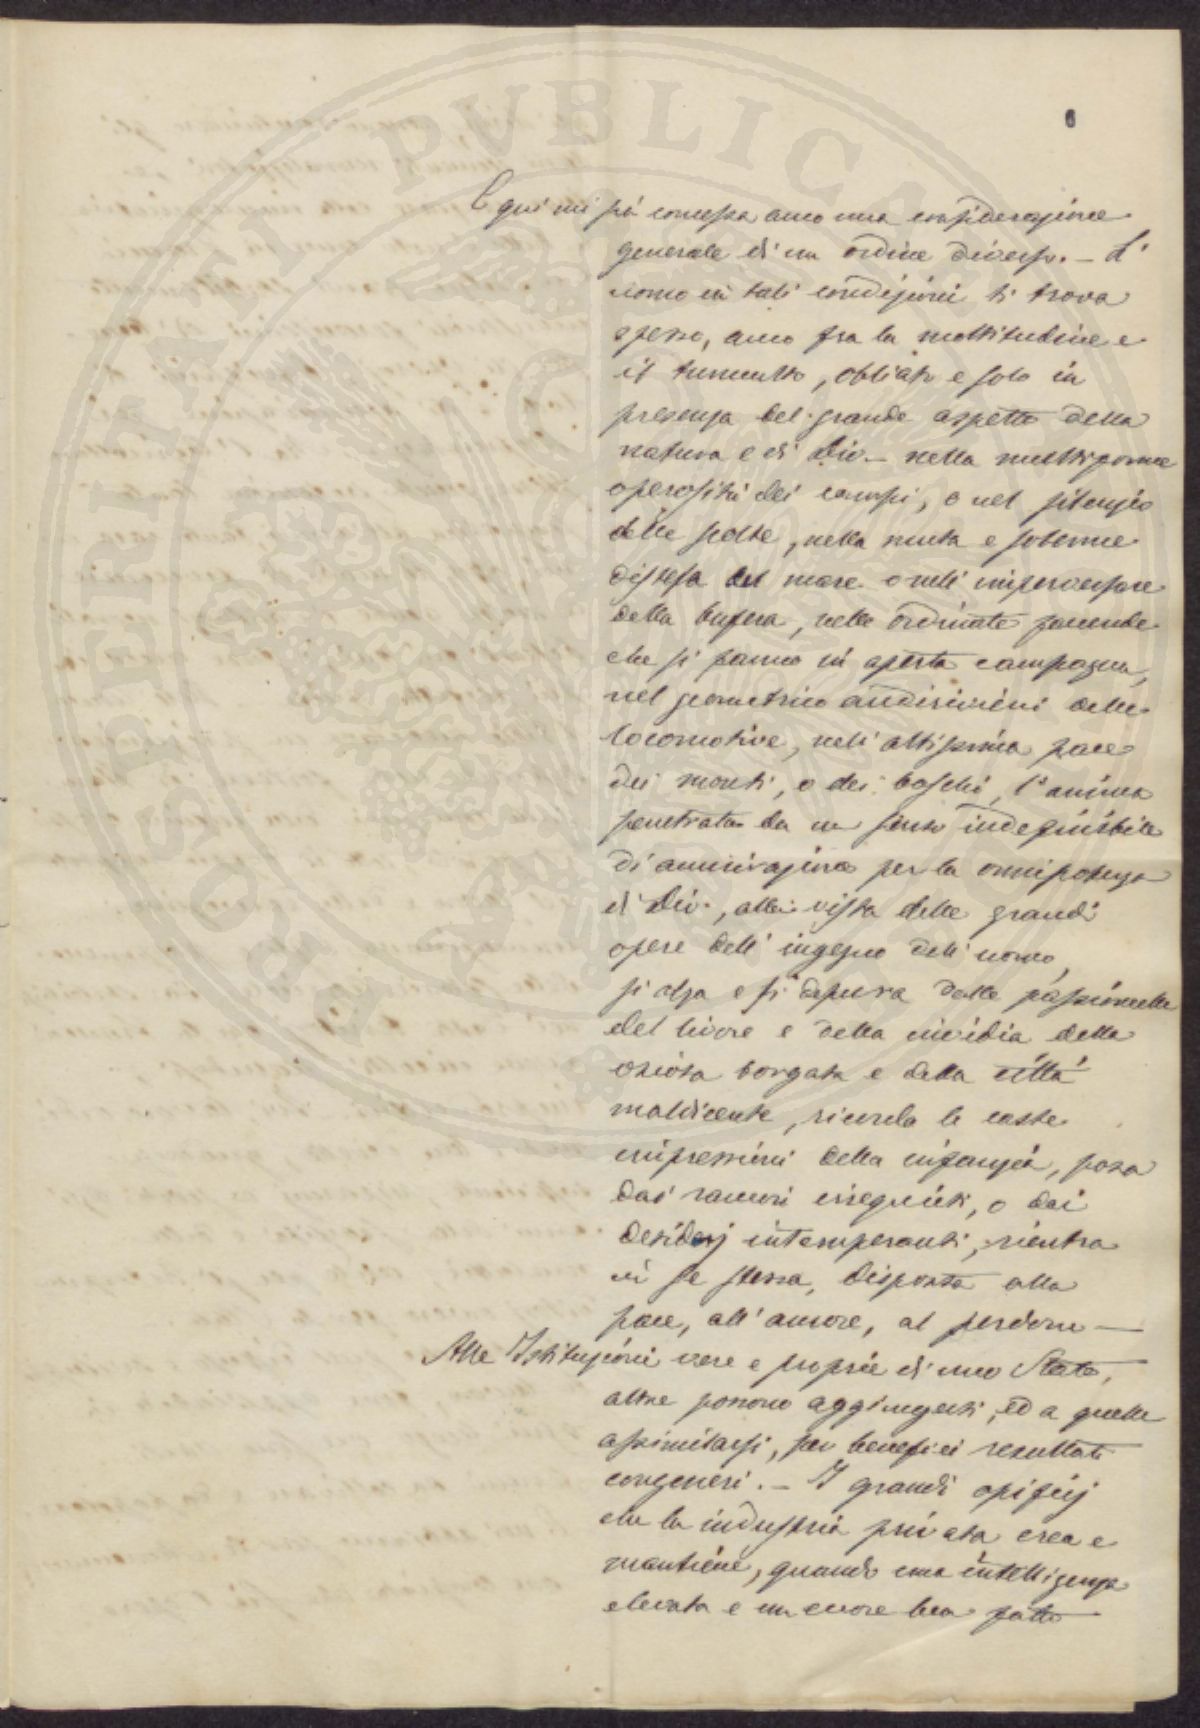 PROSPERITATI PUBLICAE
E qui mi sia concessa anco una considerazione
generale di un ordine diverso. – L'
uomo in tali condizioni si trova
spesso, anco fra la moltitudine e
il tumulto, obliato e solo in
presenza del grande aspetto della
natura e di Dio – nella multiforme
operosità dei campi, o nel silenzio
delle scolte, nella muta e solenne
distesa del mare o nell'imperversare
della bufera, nelle ordinate faccende
che si fanno in aperta campagna,
nel geometrico andirivieni delle
locomotive, nell'altissima pace
dei monti, o dei boschi, l'anima
penetrata da un senso indefinibile
di ammirazione per la onnipotenza
di Dio, alla vista delle grandi
opere dell'ingegno dell'uomo,
si alza e si depura dalle passioncelle
del livore e della invidia della
oziosa borgata e della città
maldicente, ricorda le caste
impressioni della infanzia, posa
dai rancori irrequieti, o dai
desiderj intemperanti, rientra
in se stessa, disposta alla
pace, all'amore, al perdono —
Alle Istituzioni vere e proprie di uno Stato,
altre possono aggiungersi, ed a quelle
assimilarsi, per benefici resultati
congeneri. – I grandi opificj
che la industria privata crea e
mantiene, quando una intelligenza
elevata e un cuore ben fatto